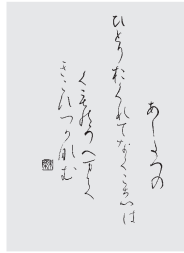 あしたつの
ひとりおくれてなくこゑは
くものうへまて
きこえつかなむ